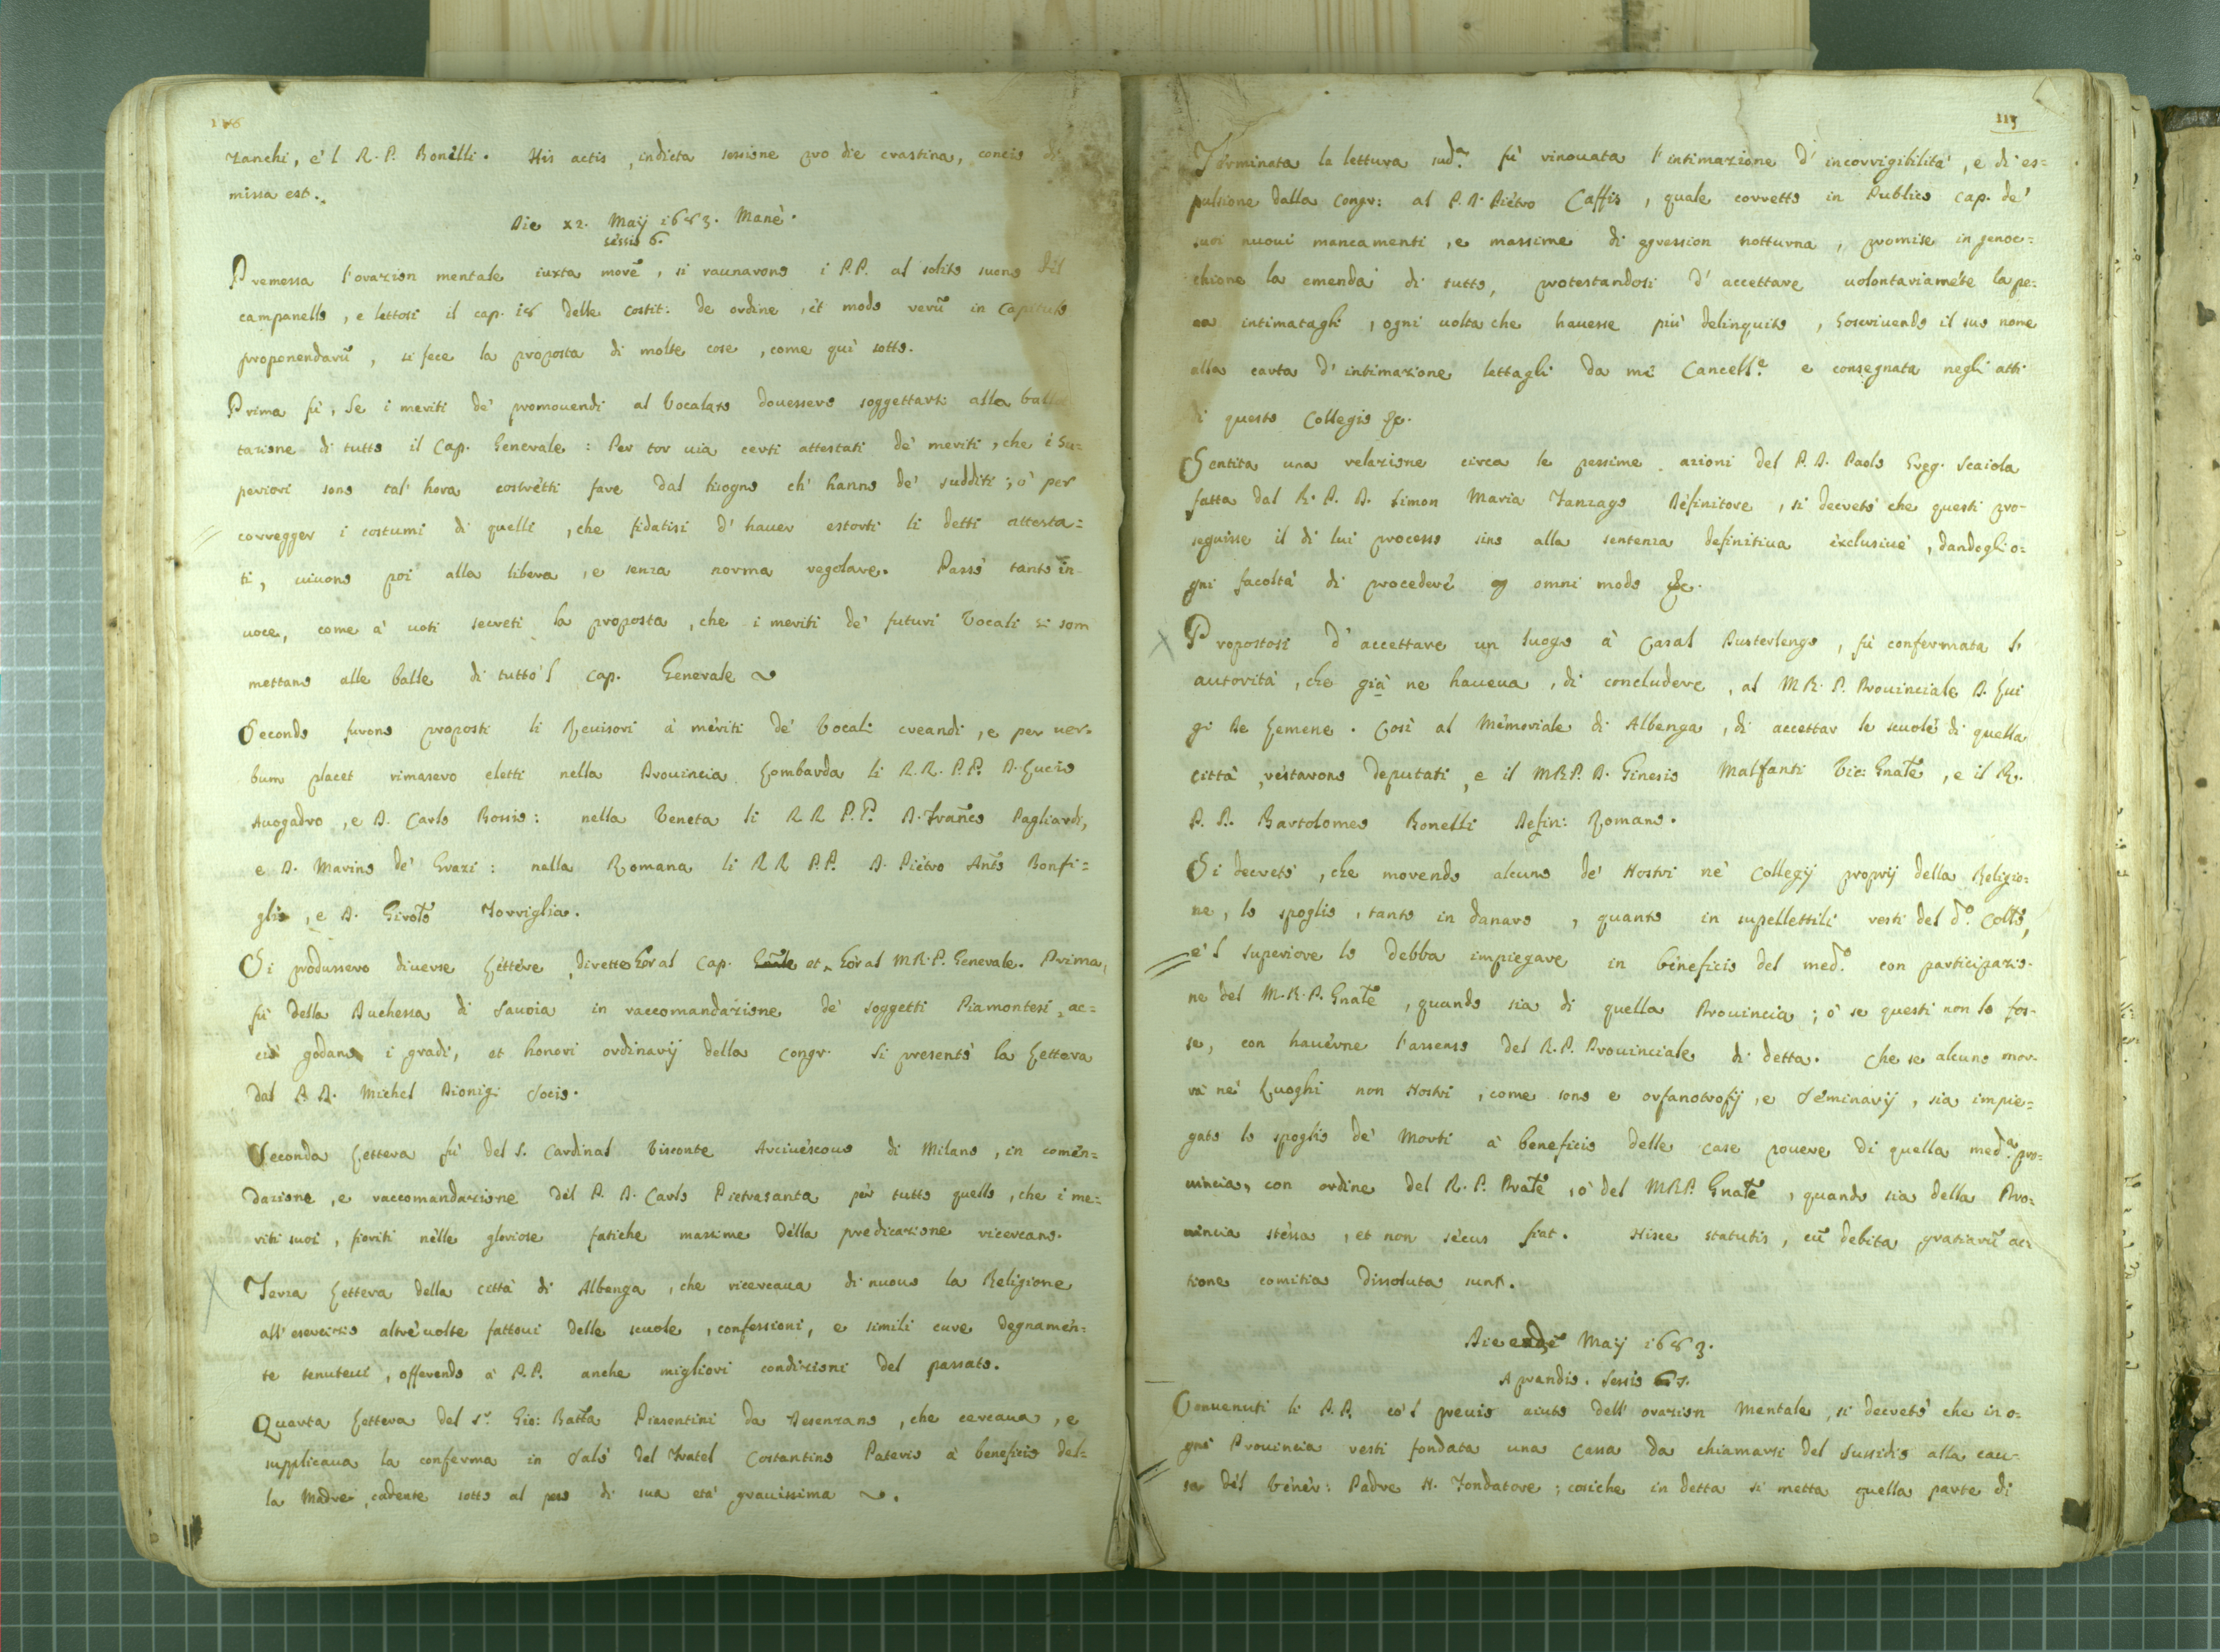 Zanchi, e'l R. P. Bonelli. His actis, indicta sessione pro die crastina, concio di
missa est.
Die 12. Maij 1683. Manè.
sessio 6.
Premessa l'orazion mentale iuxta morē, si raunarono i P.P. al solito suono del
campanello, e lettosi il cap. 18 delle Costit: de ordine, et modo rerū in Capitulo
proponendarū, si fece la proposta di molte cose, come quì sotto.
Prima fù, Se i meriti de' promouendi al Vocalato douessero soggettarsi alla ballo
tazione di tutto il Cap. Generale: Per tor uia certi attestati de' meriti, che i Su=
periori sono tal' hora costretti fare dal bisogno ch' hanno de' sudditi; ò per
corregger i costumi di quelli, che fidatisi d' hauer estorti li detti attesta=
ti, uiuono poi alla libera, e senza norma regolare. Passò tanto in
uoce, come à uoti secreti la proposta, che i meriti de' futuri Vocali si som
mettano alle balle di tutto'l Cap. Generale
Secondo furono proposti li Reuisori à meriti de' Vocali creandi, e per uer=
bum placet rimasero eletti nella Prouincia Lombarda li R.R. P.P. D. Lucio
Auogadro, e D. Carlo Bossio: nella Veneta li RR P.P. D. Franc̄o Pagliardi,
e D. Marino de' Grazi: nella Romana li RR P.P. D. Pietro Ant.o Bonfi=
glio, e D. Girol.o Torriglia.
Si produssero diuerse Lettere dirette hor al Cap. et hor al M.R.P. Generale. Prima
fù della Duchessa di Sauoia in raccomandazione de' soggetti Piamontesi, ac=
ciò godano i gradi, et honori ordinarij della Congr. Si presentò la Lettera
dal P. D. Michel Dionigi Socio.
Seconda Lettera fù del S. Cardinal Visconte Arciuescouo di Milano, in comen=
dazione, e raccomandazione del P. D. Carlo Pietrasanta per tutto quello, che i me=
riti suoi, fioriti nelle gloriose fatiche massime della predicazione ricercano.
Terza Lettera della città di Albenga, che ricercaua di nuouo la Religione
all' esercizio altre uolte fattoui delle scuole, confessioni, e simili cure degnamen=
te tenuteui, offerendo à P.P. anche migliori condizioni del passato.
Quarta Lettera del S.r Gio: Batta Piesentini da Desenzano, che cercaua, e
supplicaua la conferma in Salò del Fratel Costantino Paterio à beneficio del=
la Madre, cadente sotto al peso di sua età grauissima.
113
Terminata la lettura sud.a fù rinouata l'intimazione d' incorrigibilità, e di es=
pulsione dalla Congr: al P. D. Pietro Caffis, quale corretto in Publico Cap. de'
suoi nuoui mancamenti, e massime di ggression notturna, promise in genoc=
chione la emenda di tutto, protestandosi d' accettare uolontariamēte la pe=
na intimatagli, ogni uolta che hauesse più delinquito, soscriuendo il suo nome
alla carta d' intimazione lettagli da me Cancell.e e consegnata negli atti
di questo Collegio &c.
Sentita una relazione circa le pessime azioni del P. D. Paolo Greg. Scaiola
fatta dal R. P. D. Simon Maria Zanzago Definitore, si decretò che questi pro=
seguisse il di lui processo sino alla sentenza definitiua exclusiuè, dandogli o=
gni facoltà di procedere omni modo &c.
Propostosi d' accettare un luogo à Casal Pusterlengo, fù confermata l'
autorità, che già ne haueua, di concludere, al M.R. P. Prouinciale D. Lui
gi de Lemene. Così al Memoriale di Albenga, di accettar le scuole di quella
città, restarono deputati, e il M.R.P. D. Ginesio Malfanti Vic: Gnāle, e il R.
P. D. Bartolomeo Bonelli Defin: Romano.
Si decretò, che morendo alcuno de' Nostri ne' Collegij proprij della Religio=
ne, lo spoglio, tanto in danaro, quanto in supellettili resti del d.o Coll.o,
e'l superiore lo debba impiegare in beneficio del med.o con participazio=
ne del M.R.P. Gnāle, quando sia di quella Prouincia; ò se questi non lo fos=
se, con hauerne l'assenso del R.P. Prouinciale di detta. Che se alcuno mor=
rà ne' Luoghi non Nostri, come sono e orfanotrofij, e Seminarij, sia impie=
gato lo spoglio de' Morti à beneficio delle case pouere di quella med.a Pro=
uincia, con ordine del R. P. Prāle, ò del M.R.P. Gnāle, quando sia della Pro=
uincia stessa, et non secus fiat. Hisce statutis, cū debita gratiarū ac=
tione comitia dissoluta sunt.
Die eadē Maij 1683.
A prandio. Sessio 7.
Conuenuti li P.P. co'l preuio aiuto dell' orazion Mentale, si decretò che in o=
gni Prouincia resti fondata una cassa da chiamarsi del Sussidio alla cau=
sa del Vener: Padre N. Fondatore; cosiche in detta si metta quella parte di